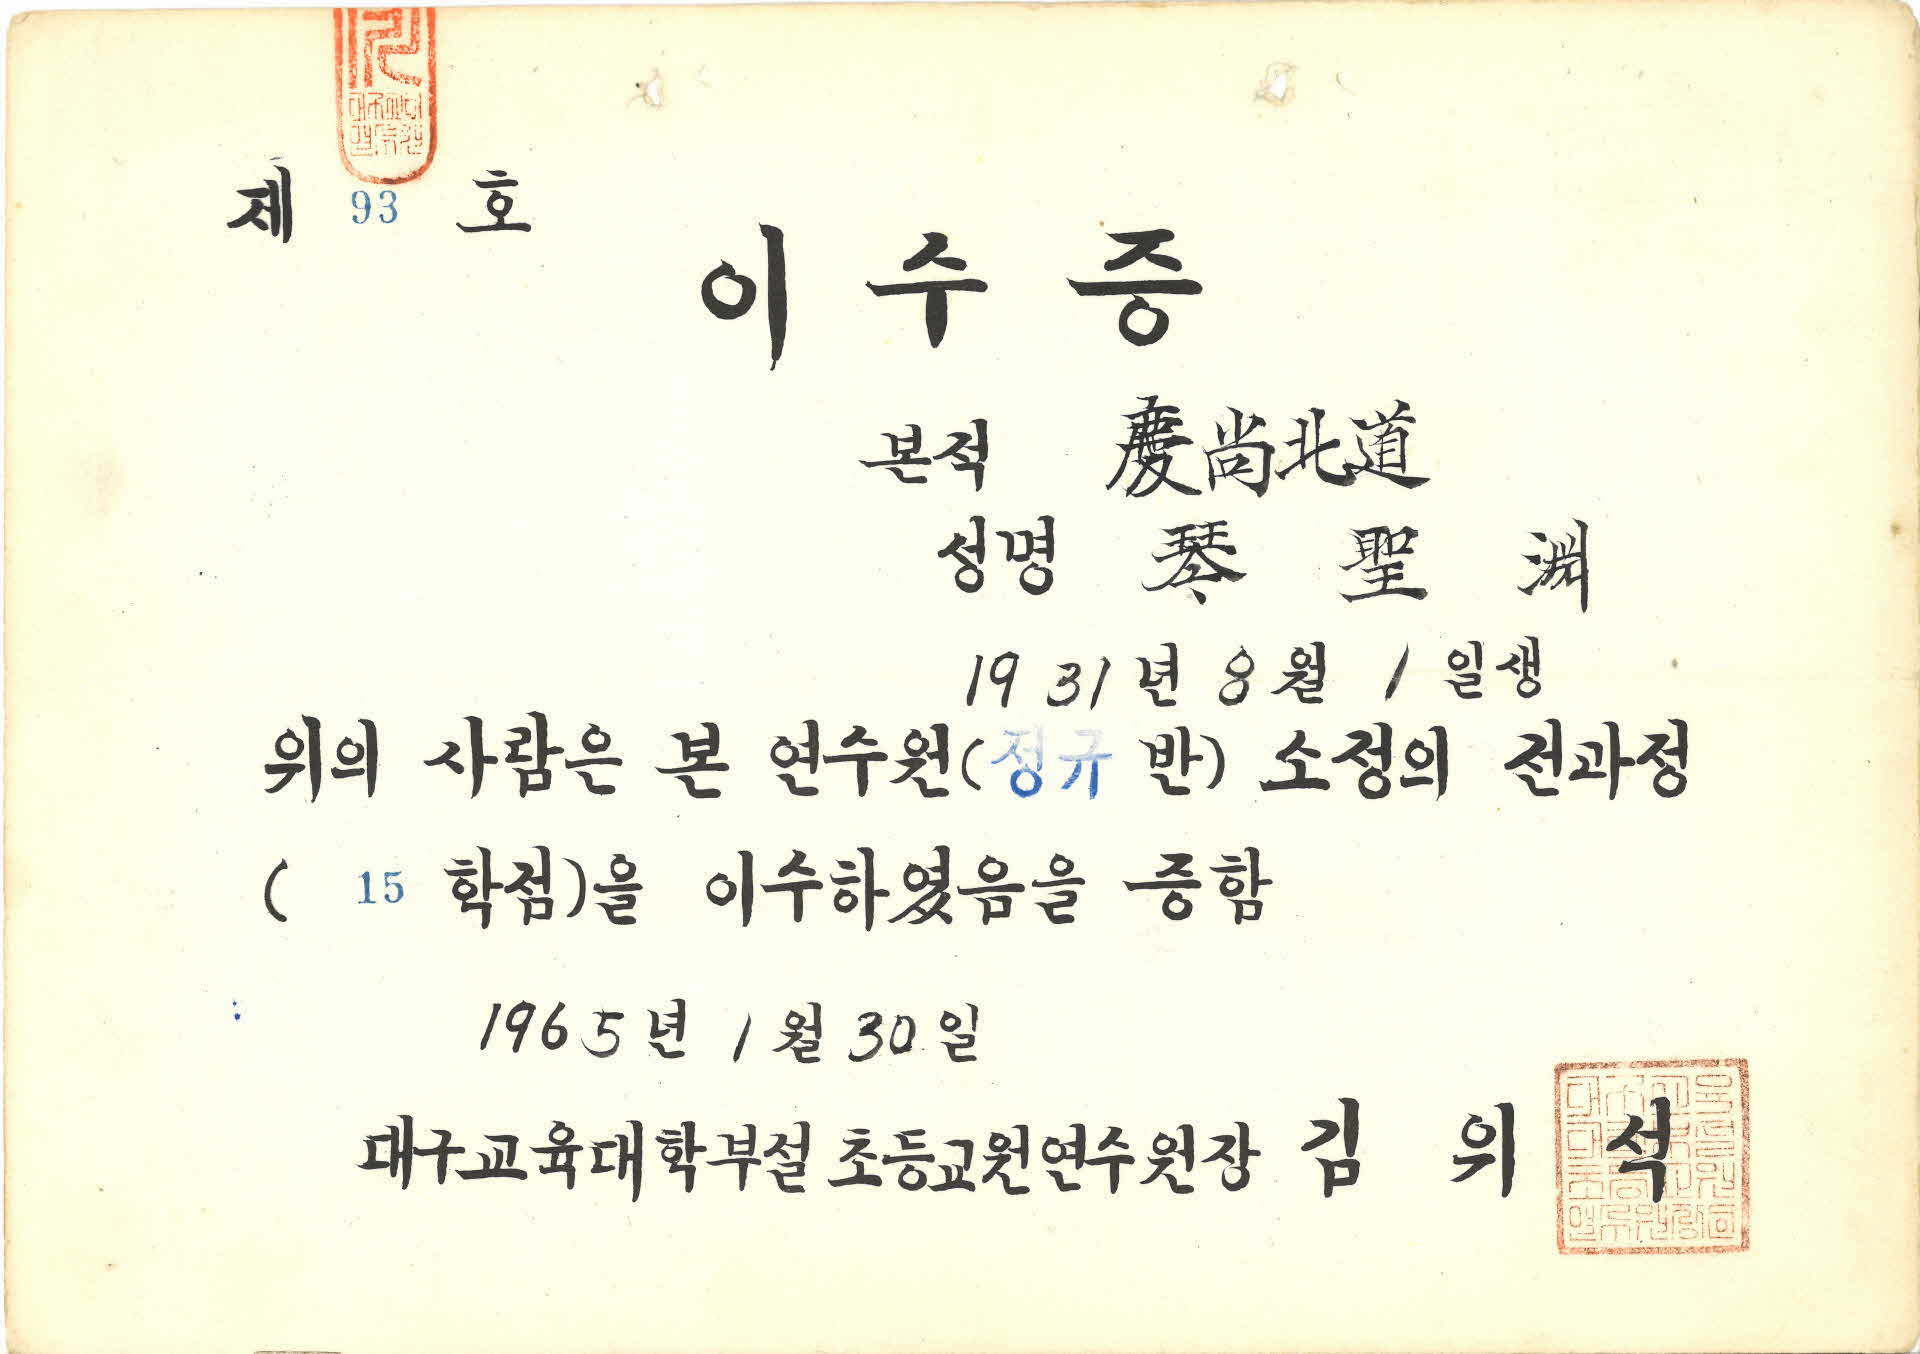 제 93 호
이수증
본적 慶尚北道
성명 琴聖淵
1931년 8월 1일생
위의 사람은 본 연수원(정규 반) 소정의 전과정
( 15 학점)을 이수하였음을 증함
1965년 1월 30일
대구교육대학부설 초등교원연수원장 김위석